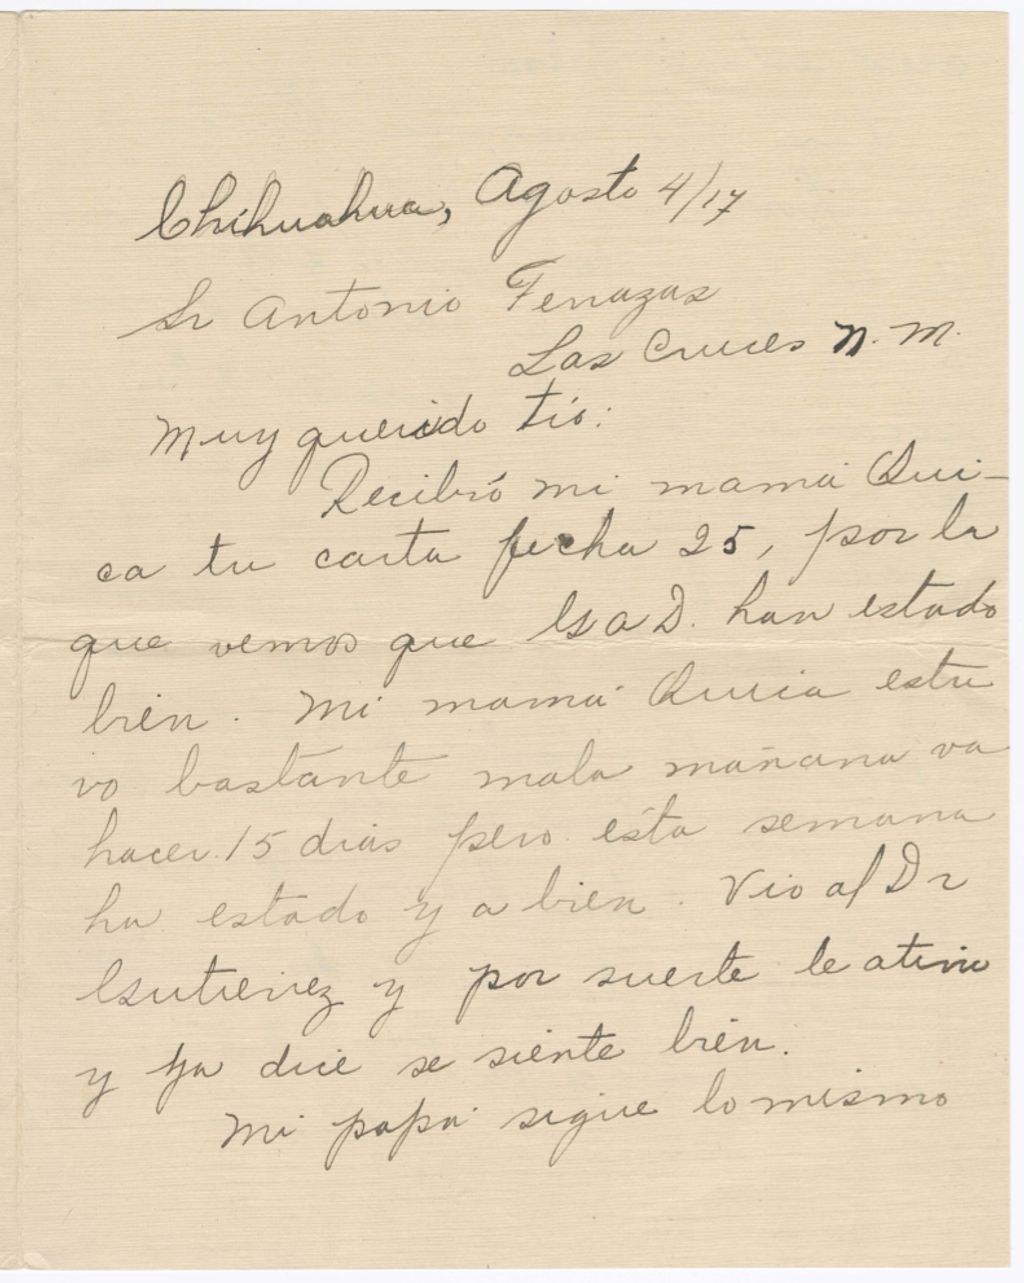 Chihuahua, Agosto 4/17
Sr Antonio Terrazas
Las Cruces N. M.
Muy querido tío:
Recibió mi mamá
ca tu carta fecha 25, por la
que vemos que G a D. han estado
bien. Mi mamá estu
vo bastante mala mañana va
hacer 15 dias pero ésta semana
ha estado ya bien. Vio al Dr
Gutierrez y por suerte le atino
y ya dice se siente bien.
Mi papá sigue lo mismo